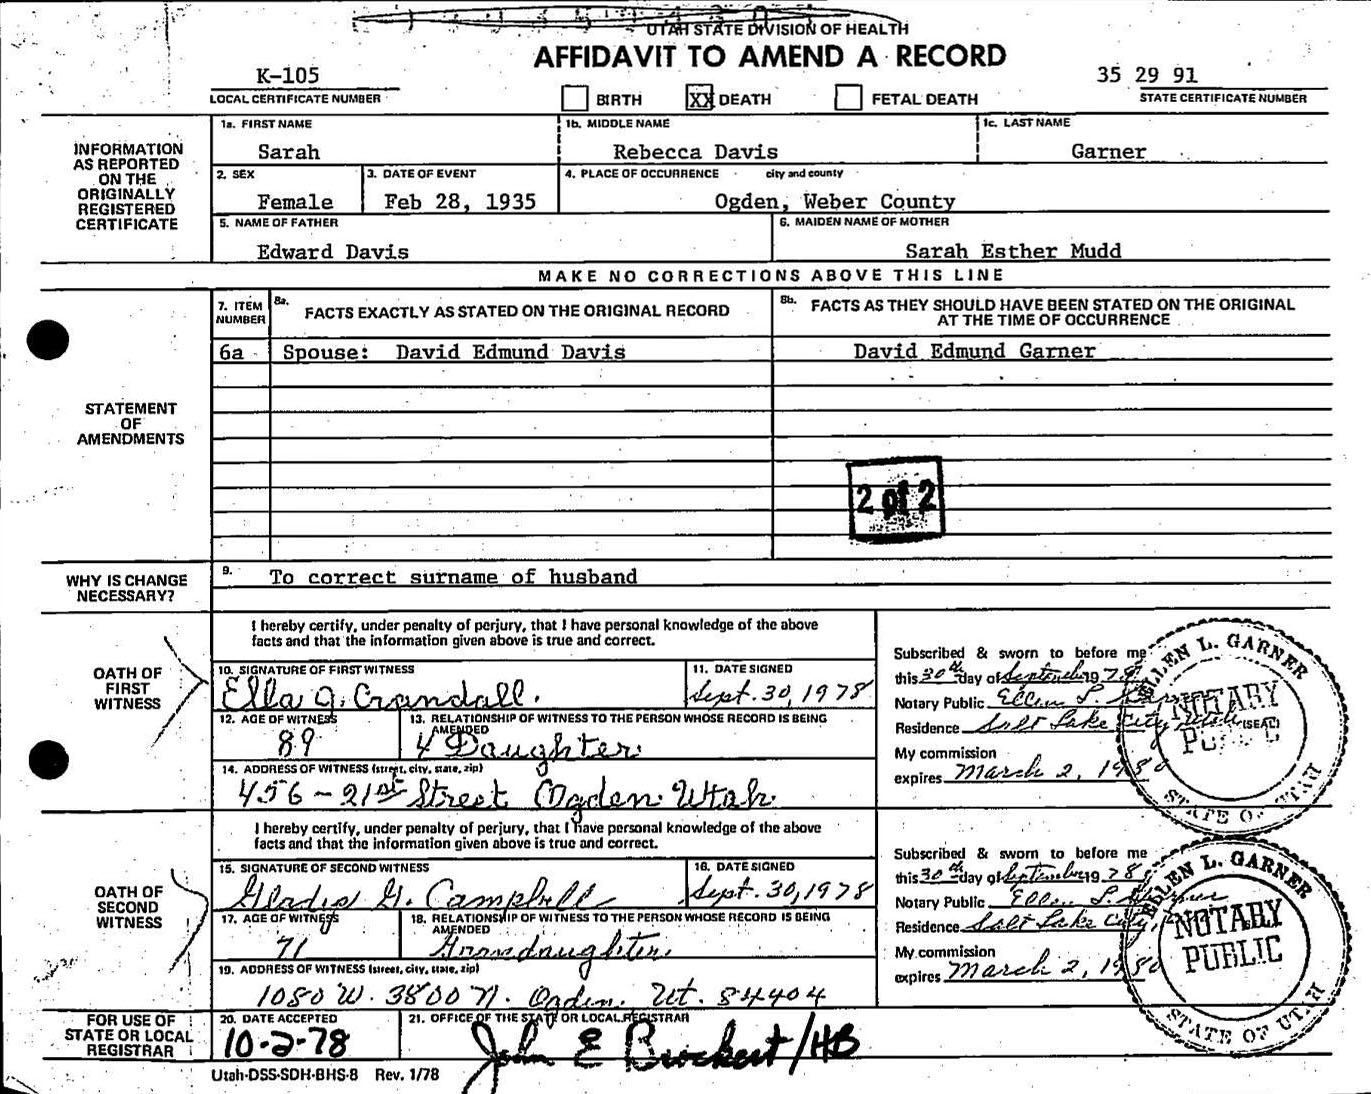 UTAH STATE DIVISION OF HEALTH
AFFIDAVIT TO AMEND A RECORD
K-105
LOCAL CERTIFICATE NUMBER
BIRTH
XX DEATH
FETAL DEATH
35 29 91
STATE CERTIFICATE NUMBER
INFORMATION
AS REPORTED
ON THE
ORIGINALLY
REGISTERED
CERTIFICATE
1a. FIRST NAME
Sarah
1b. MIDDLE NAME
Rebecca Davis
1c. LAST NAME
Garner
2. SEX
Female
3. DATE OF EVENT
Feb 28, 1935
4. PLACE OF OCCURRENCE city and county
Ogden, Weber County
5. NAME OF FATHER
Edward Davis
6. MAIDEN NAME OF MOTHER
Sarah Esther Mudd
MAKE NO CORRECTIONS ABOVE THIS LINE
STATEMENT
OF
AMENDMENTS
7. ITEM
NUMBER
8a. FACTS EXACTLY AS STATED ON THE ORIGINAL RECORD
8b. FACTS AS THEY SHOULD HAVE BEEN STATED ON THE ORIGINAL
AT THE TIME OF OCCURRENCE
6a Spouse: David Edmund Davis
David Edmund Garner
2 of 2
WHY IS CHANGE
NECESSARY?
9. To correct surname of husband
OATH OF
FIRST
WITNESS
I hereby certify, under penalty of perjury, that I have personal knowledge of the above
facts and that the information given above is true and correct.
10. SIGNATURE OF FIRST WITNESS
Ella G. Crandall.
11. DATE SIGNED
Sept. 30, 1978
12. AGE OF WITNESS
89
13. RELATIONSHIP OF WITNESS TO THE PERSON WHOSE RECORD IS BEING
AMENDED
Daughter
14. ADDRESS OF WITNESS (street, city, state, zip)
456 - 21st Street Ogden Utah
Subscribed & sworn to before me
this 30th day of September 1978
Notary Public Ellen L.
Residence Salt Lake City, Utah (SEAL)
My commission
expires March 2, 1980
ELLEN L. GARNER
NOTARY
PUBLIC
STATE OF UTAH
OATH OF
SECOND
WITNESS
I hereby certify, under penalty of perjury, that I have personal knowledge of the above
facts and that the information given above is true and correct.
15. SIGNATURE OF SECOND WITNESS
Gladis G. Campbell
16. DATE SIGNED
Sept. 30, 1978
17. AGE OF WITNESS
71
18. RELATIONSHIP OF WITNESS TO THE PERSON WHOSE RECORD IS BEING
AMENDED
Grandaughter
19. ADDRESS OF WITNESS (street, city, state, zip)
1080 W. 3800 N. Ogden, Ut. 84404
Subscribed & sworn to before me
this 30th day of September 1978
Notary Public Ellen L.
Residence Salt Lake City,
My commission
expires March 2, 1980
ELLEN L. GARNER
NOTARY
PUBLIC
STATE OF UTAH
FOR USE OF
STATE OR LOCAL
REGISTRAR
20. DATE ACCEPTED
10-2-78
21. OFFICE OF THE STATE OR LOCAL REGISTRAR
John E Brockert/HB
Utah-DSS-SDH-BHS-8 Rev. 1/78